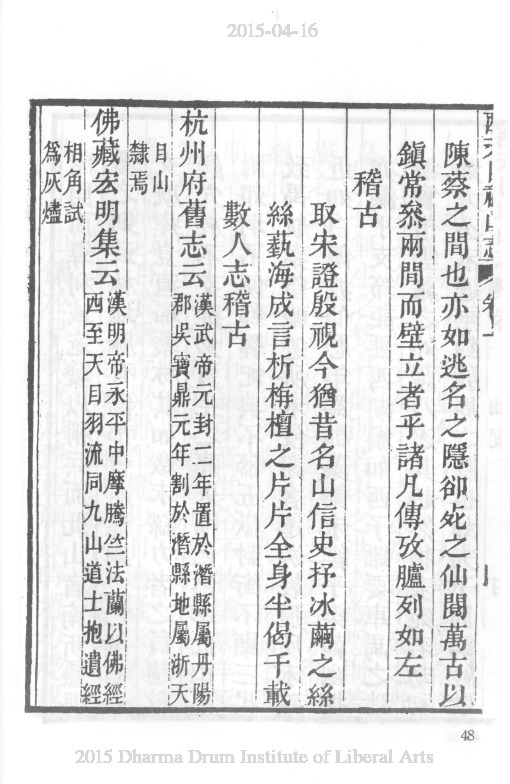 2015-04-16
陳蔡之間也亦如逃名之隱卻虎之仙閱萬古以
鎮常叅兩間而壁立者乎諸凡傳攷臚列如左
稽古
取宋證殷視今猶昔名山信史抒冰蠒之絲
絲藝海成言析栴檀之片片全身半偈千載
數人志稽古
杭州府舊志云漢武帝元封二年置於潛縣屬丹陽
郡吳寶鼎元年割於潛縣地屬浙天
目山
隸焉
佛藏宏明集云漢明帝永平中摩騰竺法蘭以佛經
西至天目羽流同九山道士抱遺經
相角試
為灰燼
48
2015 Dharma Drum Institute of Liberal Arts